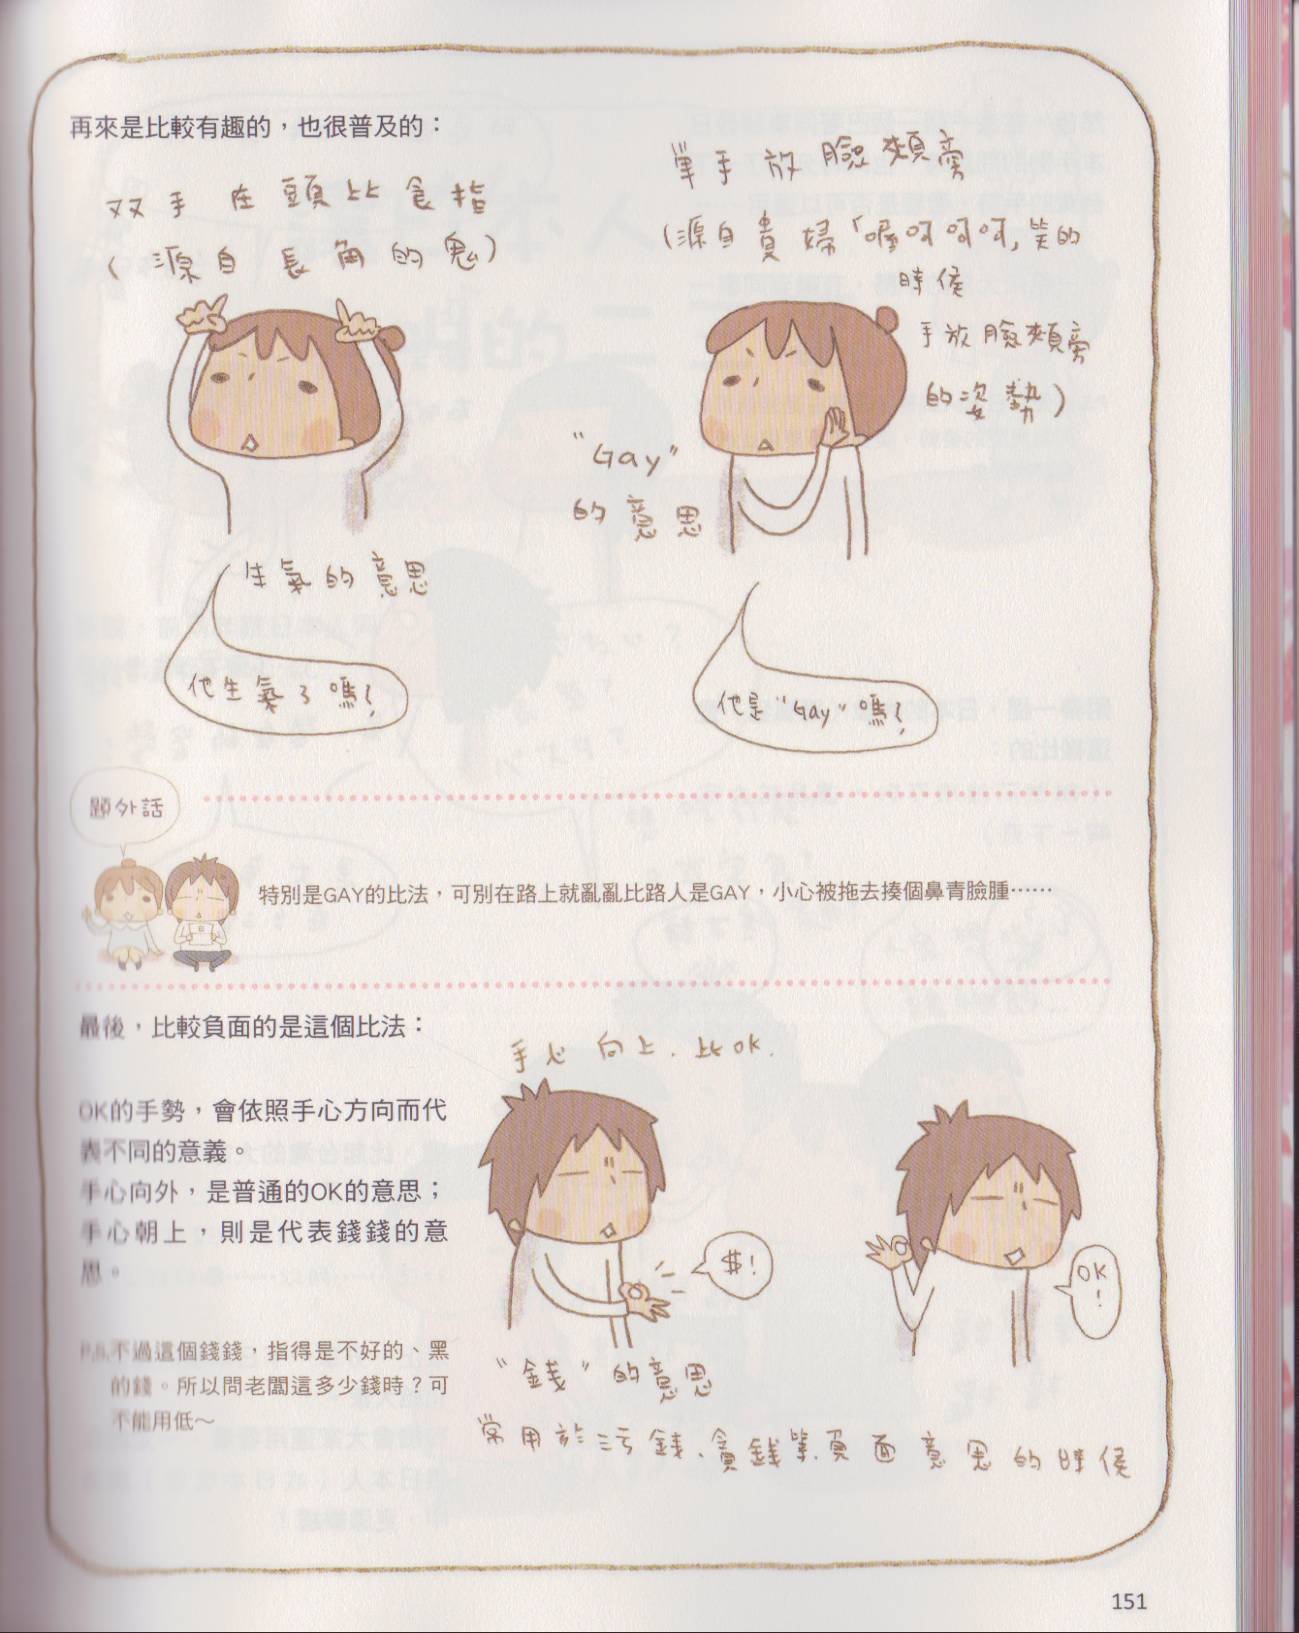 再來是比較有趣的，也很普及的：
双手在頭比食指
（源自長角的鬼）
單手放臉頰旁
（源自貴婦「喔呵呵呵，笑的
時候
手放臉頰旁
的姿勢）
"Gay"
的意思
生氣的意思
他生氣了嗎？
他是"Gay"嗎？
題外話
特別是GAY的比法，可別在路上就亂亂比路人是GAY，小心被拖去揍個鼻青臉腫……
最後，比較負面的是這個比法：
手心向上．比OK．
OK的手勢，會依照手心方向而代
表不同的意義。
手心向外，是普通的OK的意思；
手心朝上，則是代表錢錢的意
思。
$!
OK
!
P.S.不過這個錢錢，指得是不好的、黑
的錢。所以問老闆這多少錢時？可
不能用低～
"錢"的意思
常用於污錢、貪錢等負面意思的時候
151